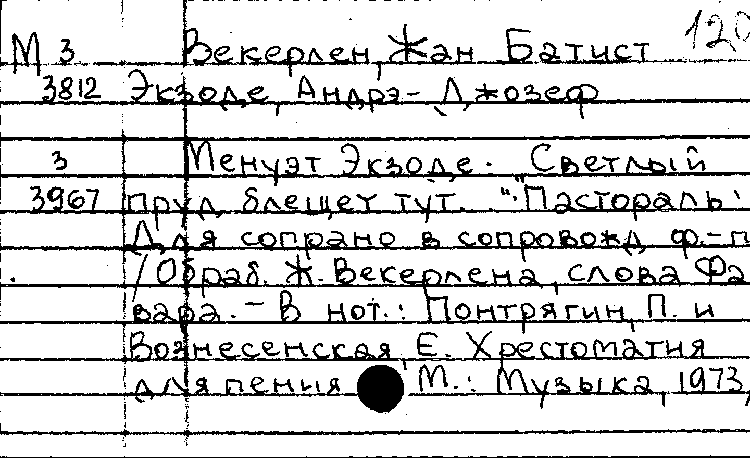 М 3 Векерлен, Жан Батист 120
3812 Экзоде, Андрэ-Джозеф
3 Менуэт Экзоде. "Светлый
3967 пруд блещет тут." Пастораль.
Для сопрано в сопровожд. ф.-п
/Обраб. Ж. Векерлена, слова Фа
вара. - В нот.: Понтрягин, П. и
Вознесенская, Е. Хрестоматия
для пения М.: Музыка, 1973,